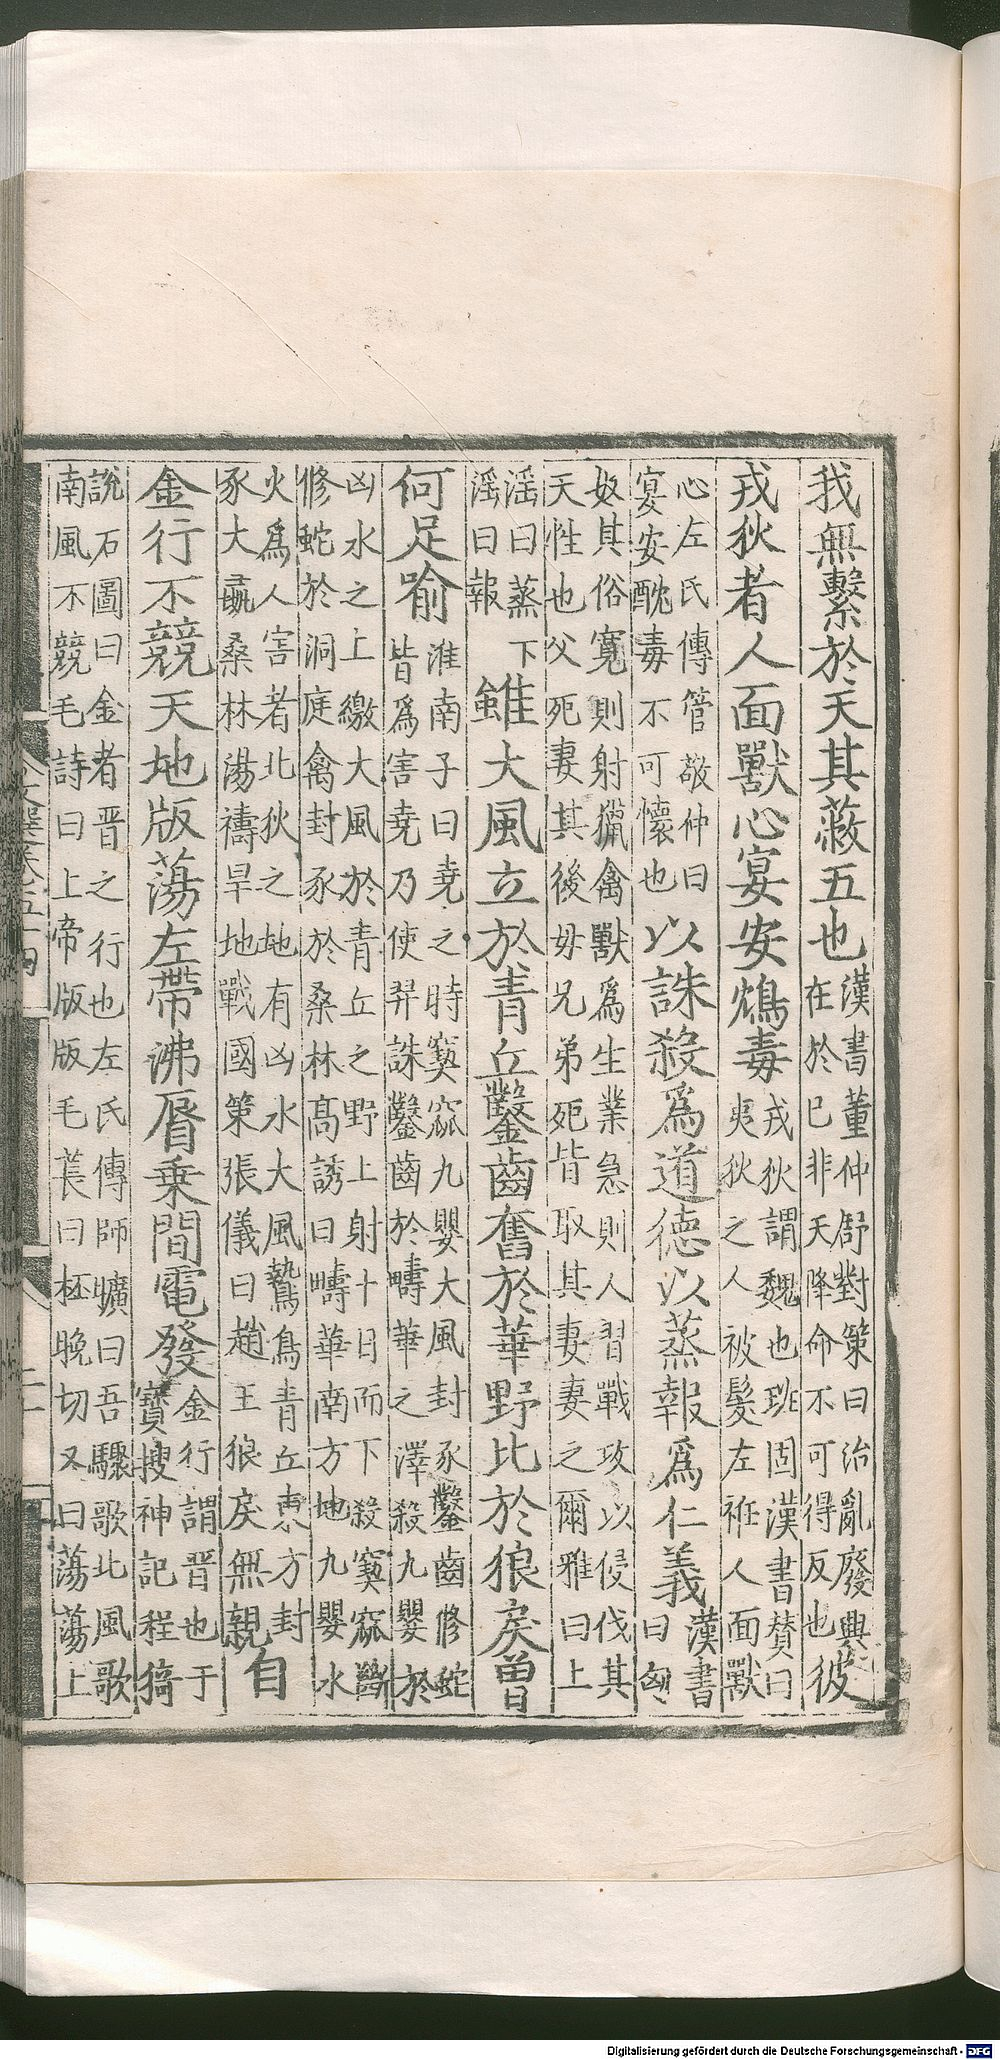 我無繫於天其蔽五也漢書董仲舒對策曰治亂廢興
在於已非天降命不可得反也彼
戎狄者人面獸心宴安鴆毒戎狄謂魏也班固漢書贊曰
夷狄之人被髮左衽人面獸
心左氏傳管敬仲曰
宴安酖毒不可懷也以誅殺為道德以蒸報為仁義漢書
曰匈
奴其俗寬則射獵禽獸為生業急則人習戰攻以侵伐其
天性也父死妻其後母兄弟死皆取其妻妻之爾雅曰上
淫曰蒸下
淫曰報雖大風立於青丘鑿齒奮於華野比於狼戾曾
何足喻淮南子曰堯之時窫窳九嬰大風封豕鑿齒修蛇
皆為害堯乃使羿誅鑿齒於疇華之澤殺九嬰於
凶水之上繳大風於青丘之野上射十日而下殺窫窳斷
修蛇於洞庭禽封豕於桑林高誘曰疇華南方地九嬰水
火為人害者北狄之地有凶水大風鷙鳥青丘東方封
豕大彘桑林湯禱旱地戰國策張儀曰趙王狼戾無親自
金行不競天地版蕩左帶沸脣乘間電發金行謂晉也于
寶搜神記程猗
說石圖曰金者晉之行也左氏傳師曠曰吾驟歌北風歌
南風不競毛詩曰上帝版版毛萇曰杯晚切又曰蕩蕩上
文選卷五十四
Digitalisierung gefördert durch die Deutsche Forschungsgemeinschaft - DFG